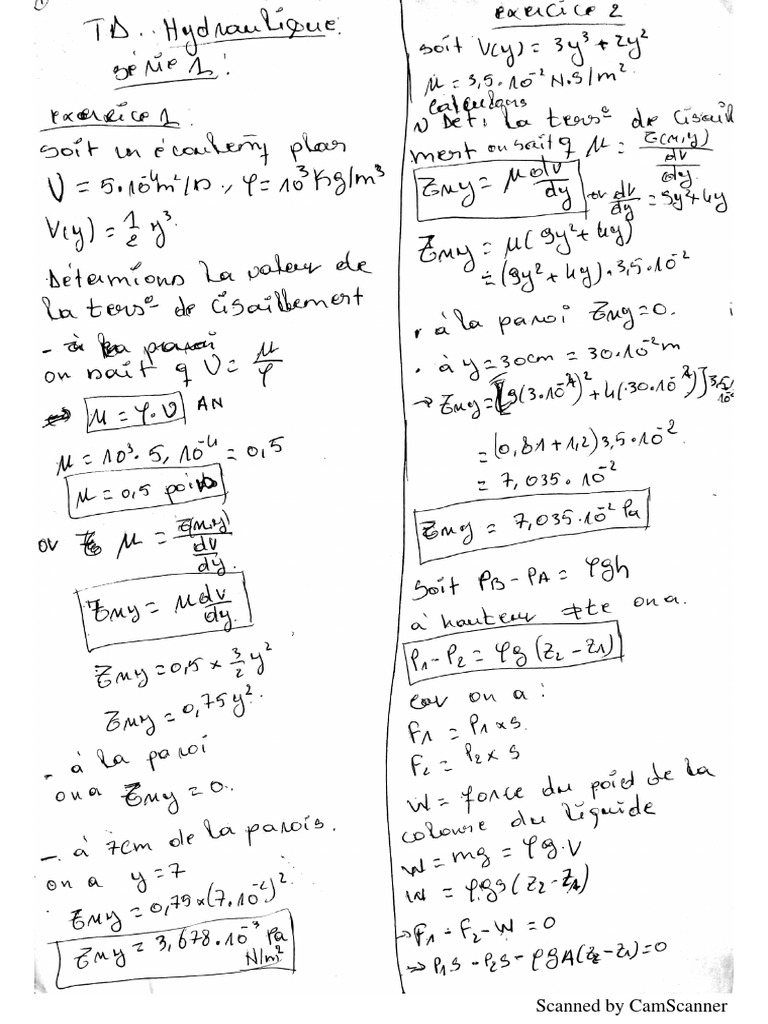 TD.. Hydraulique.
série 1 :
exercice 1 :
soit un écoulemt plan
υ = 5.10⁻⁴ m²/s , φ = 10³ kg/m³
V(y) = 1/2 y³.
Détermions la valeur de
la terse de cisaillement
- à la paroi
on sait q υ = μ/φ
⇒ μ = φ.υ AN
μ = 10³. 5, 10⁻⁴ = 0,5
μ = 0,5
or μ = τ(x,y) / (dv/dy).
τxy = μ dv/dy.
τxy = 0,5 × 3/2 y²
τxy = 0,75 y².
- à la paroi
on a τxy = 0.
- à 7cm de la parois.
on a y = 7
τxy = 0,75 × (7.10⁻²)²
τxy = 3,678.10⁻³ Pa
N/m²
exercice 2
soit V(y) = 3y³ + 2y²
μ = 3,5.10⁻² N.S/m².
calculons
1) Det : la terse de cisaill
ment on sait q μ = τ(x,y) / (dv/dy).
τxy = μ dv/dy or dv/dy = 9y² + 4y
τxy = μ(9y² + 4y)
= (9y² + 4y) . 3,5.10⁻²
• à la paroi τxy = 0.
• à y = 30cm = 30.10⁻² m
→ τxy = [9(3.10⁻¹)² + 4(30.10⁻²)] 3,5 10⁻²
= (0,81 + 1,2) 3,5.10⁻²
= 7,035.10⁻²
τxy = 7,035.10⁻² Pa
Soit PB - PA = φgh
à hauteur ≠te on a.
P1 - P2 = φg (Z2 - Z1)
car on a :
F1 = P1 × s.
F2 = P2 × s
W = force du poid de la
colonne du liquide
W = mg = φg.V
W = φgs(Z2 - Z1)
→ F1 - F2 - W = 0
→ P1s - P2s - φgA(Z2 - Z1) = 0
Scanned by CamScanner